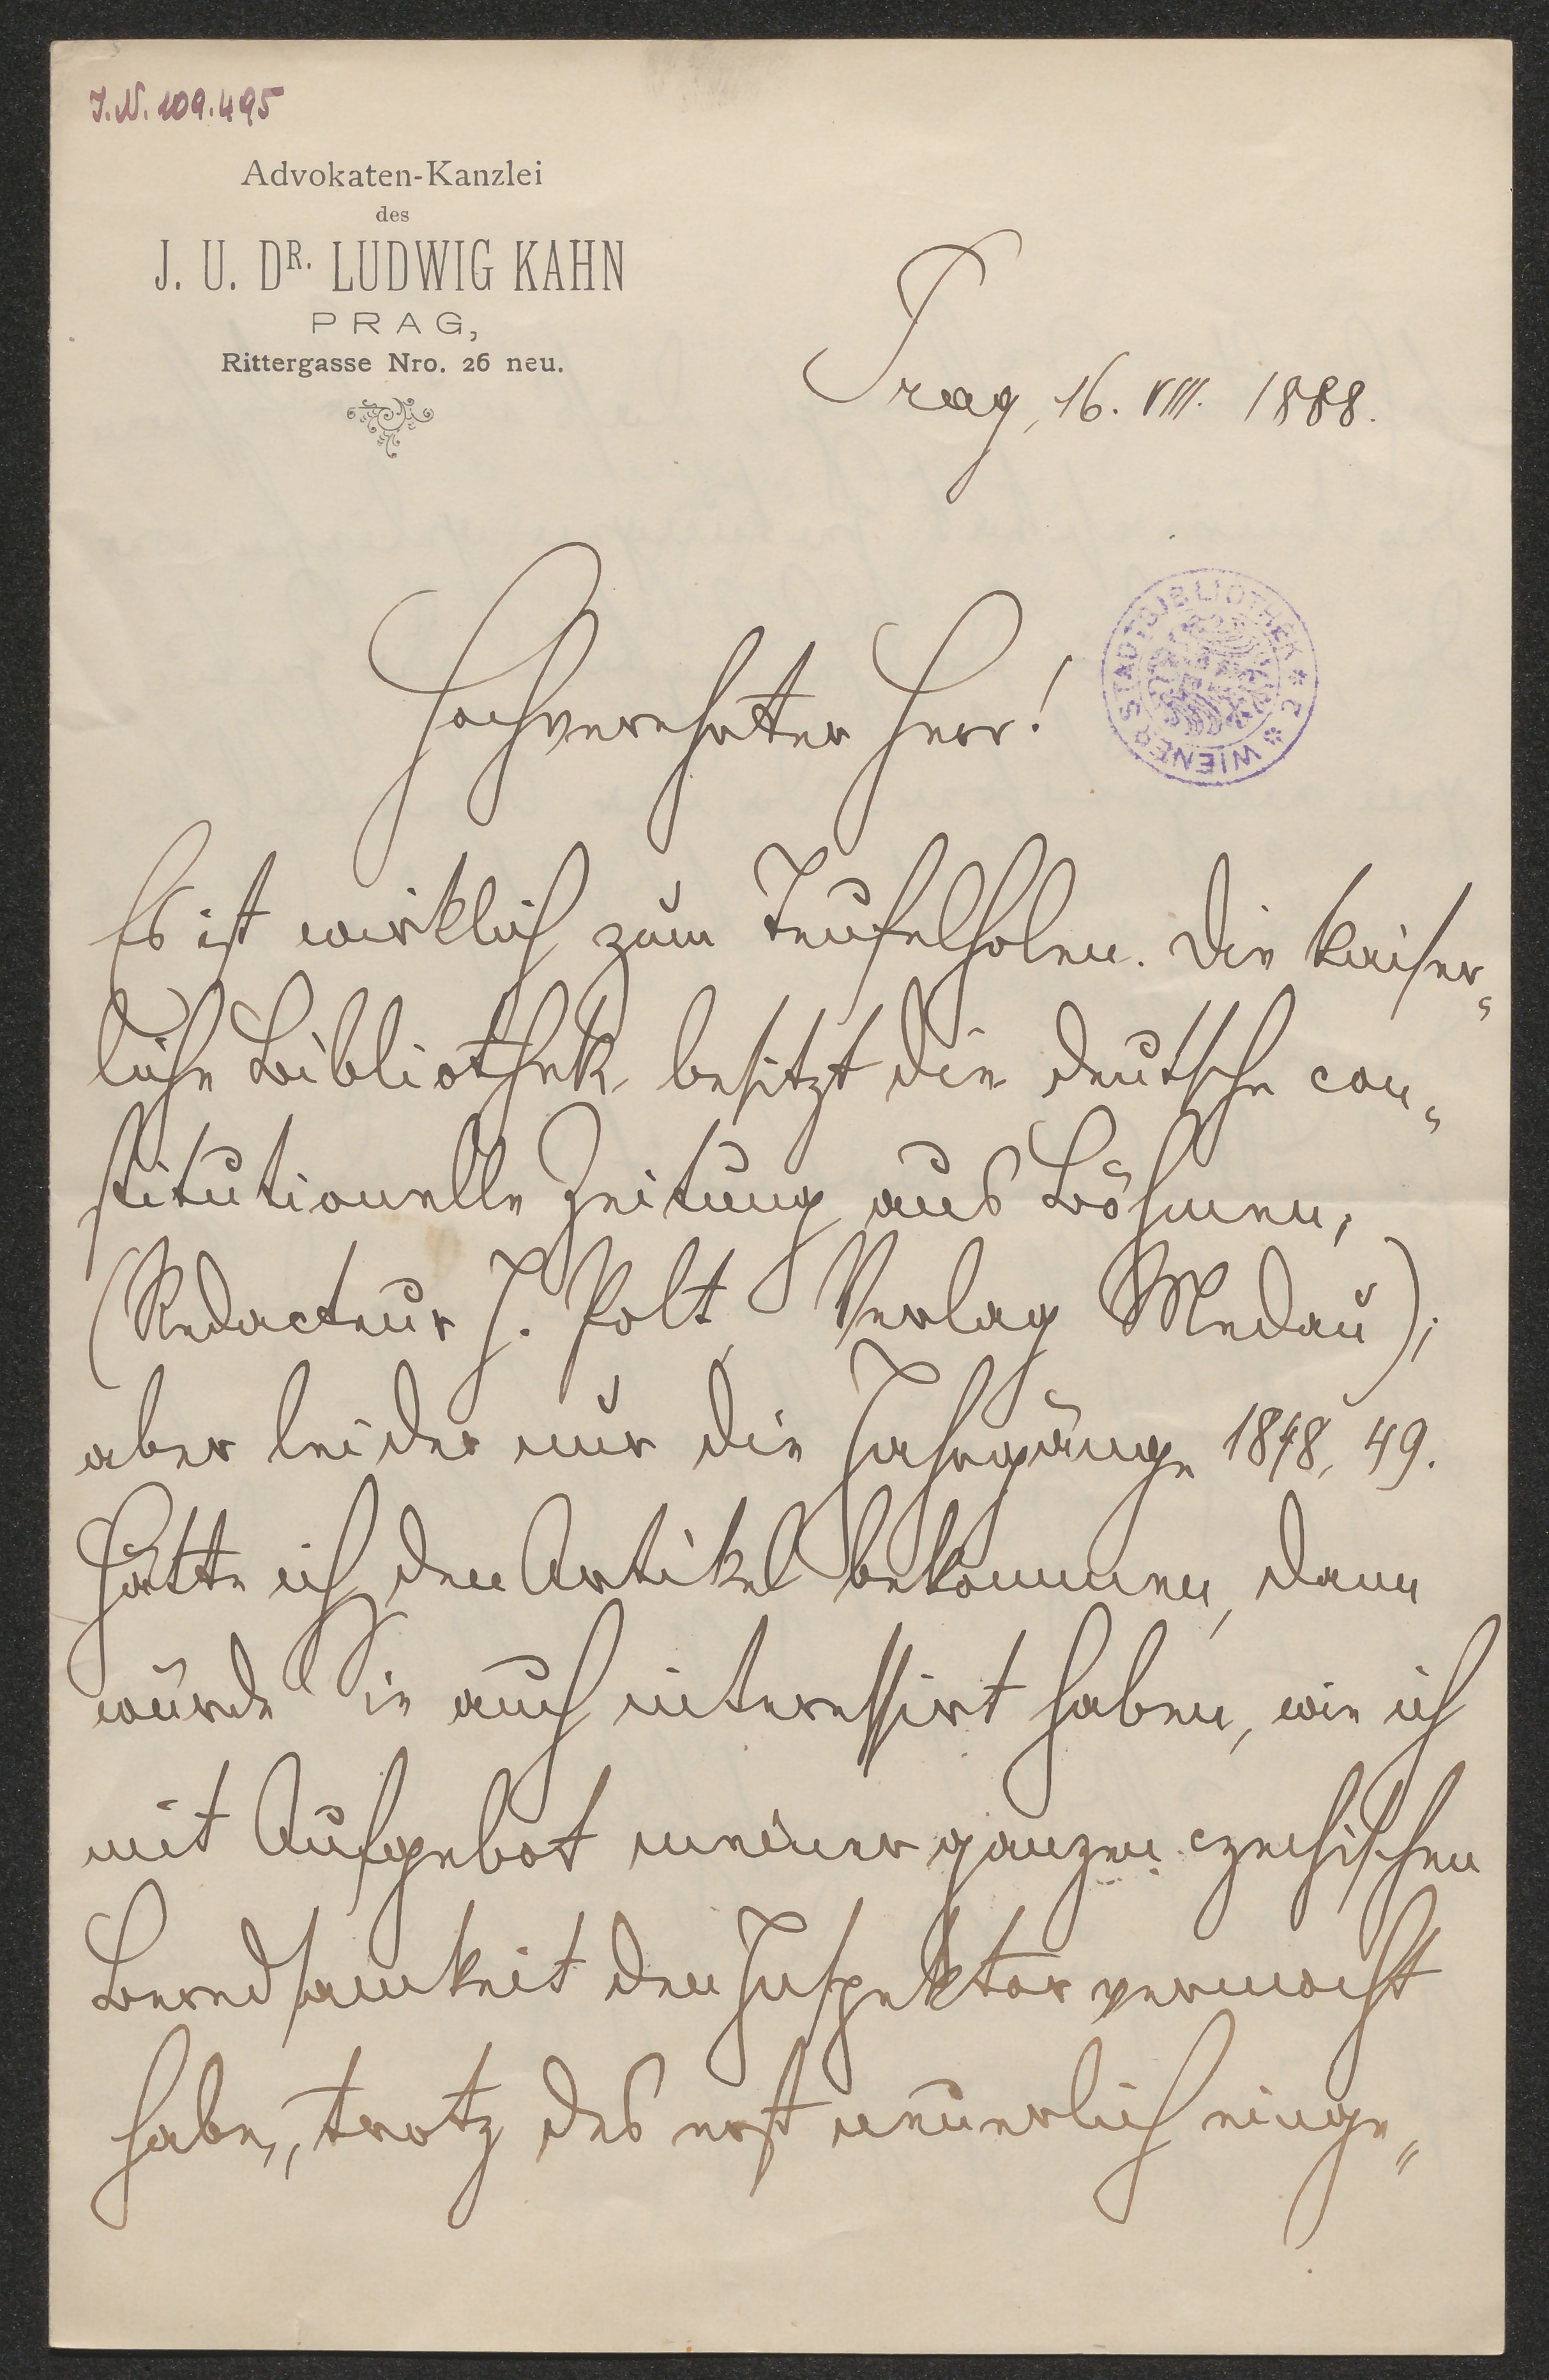 J.N. 109.495
Advokaten-Kanzlei
des
J. U. DR. LUDWIG KAHN
PRAG,
Rittergasse Nro. 26 neu.
Prag, 16. VIII. 1888.
Hochverehrter Herr!
WIENER STADTBIBLIOTHEK * 2 *
Es ist wirklich zum Teufelholen. Die kaiser„
liche Bibliothek besitzt die deutsche con„
stitutionelle Zeitung aus Böhmen,
(Redacteur J. Polt, Verlag Medau);
aber leider nur die Jahrgänge 1848, 49.
Hätte ich den Artikel bekommen, dann
würde Sie auch interessirt haben, wie ich
mit Aufgebot meiner ganzen czechischen
Beredsamkeit den Inspektor vermocht
habe, trotz des erst neuerlich einge„